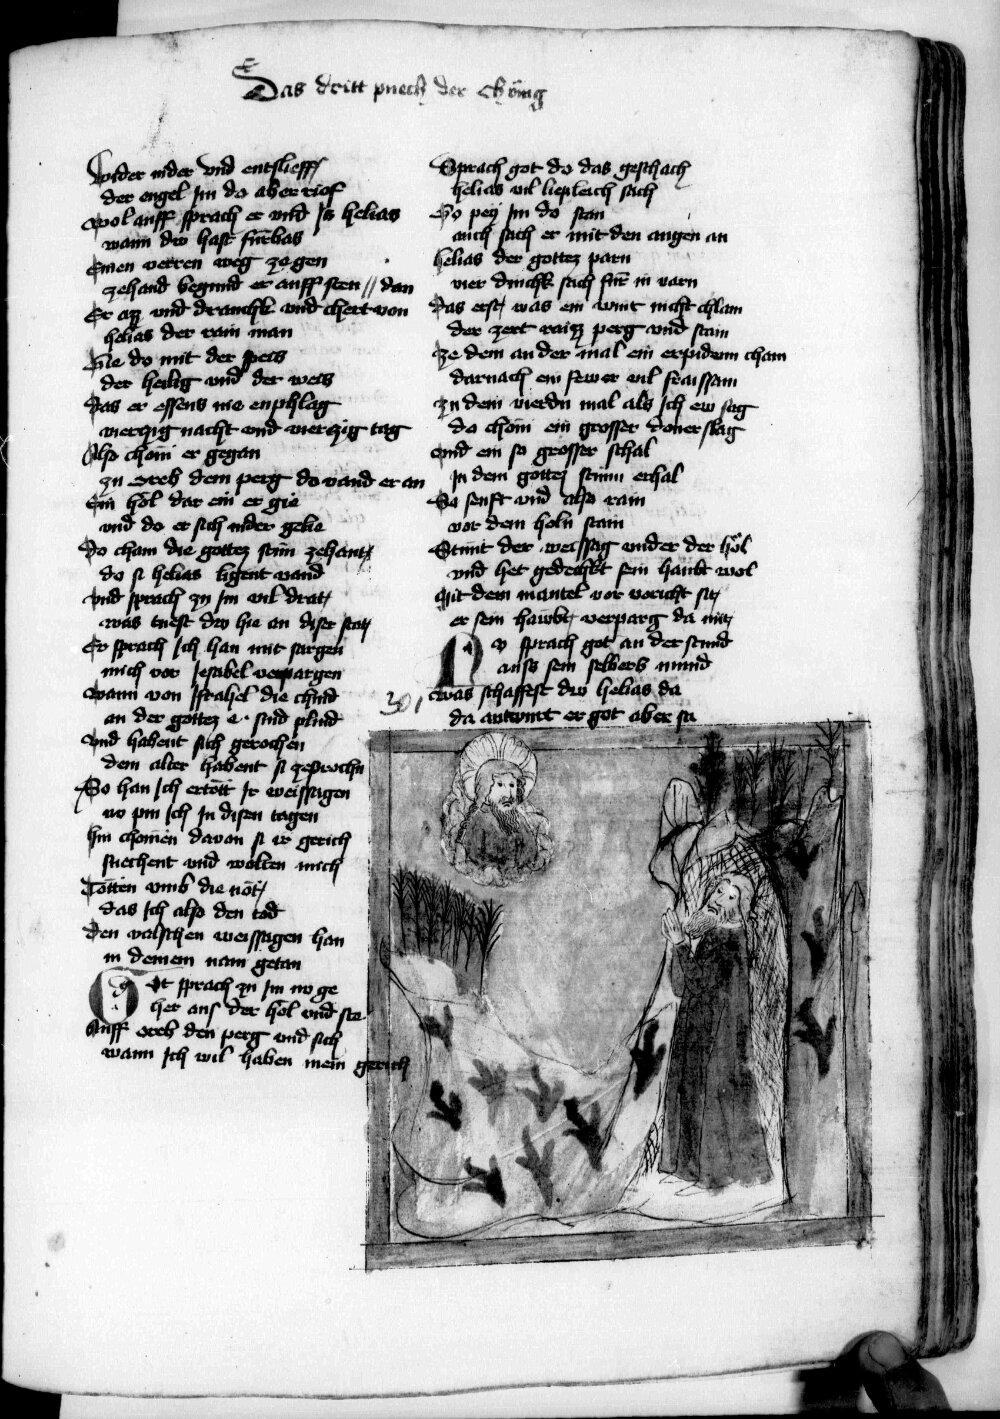 Das dritt puech der chünig
wider nider vnd entslieff
der engel Im do aber rief
wol auff sprach er vnd Is helias
wann dw hast fürbas
Einen verren weg ze gen
zehand begund er auff sten // dan
Er azz vnd dranckh vnd chert von
helias der rain man
Gie do mit der speis
der heilig vnd der weis
das er essens nie enphlag
vierczig nacht vnd vierczig tag
Also chom er gegan
zu oreb dem perg do vand er an
Ein höl dar ein er gie
vnd do er sich nider gelie
Do cham die gottez stim zehant
do si helias ligent vand
vnd sprach zu Im vil drat
was tuest dw hie an diser stat
Er sprach Ich han mit sargen
mich vor Jesabel verpargen
wann von Israhel die chind
an der gottez e sind plind
vnd habent sich gerochen
dem alter habent si zeprochn
So han Ich ertött Ir weissagen
nv pin Ich In disen tagen
hin chomen davon si ir gerich
suechent vnd wolten mich
Tötten vmb die nöt
das Ich also den tod
den valschen weissagen han
in deinem nam getan
Got sprach zu Im nv ge
her aus der höl vnd ste
Auff oreb den perg vnd sich
wann Ich wil haben mein gerich
Sprach got do das geschach
helias vil liepleich sach
So pey Im do stan
auch sach er mit den augen an
helias der gottez parn
vier dinckh sach für in varn
das erst was ein wint nicht chlain
der zert raizz perg vnd stain
ze dem ander mal ein erpidem cham
darnach ein fewer vil fraissam
zu dem vierdn mal als Ich ew sag
do chom ein grosser donerslag
vnd ein so grosser schal
In dem gottez stimm erhal
So senft vnd also rain
vor dem holn stain
Stunt der weissag vnder der höl
vnd het gedeckht sein haubt wol
Mit dem mantel vor voricht sit
er sein hawbt verparg da mit
Nv sprach got an der stund
auss sein selbers mund
was schaffest dw helias da
da antwurt er got aber sa
301